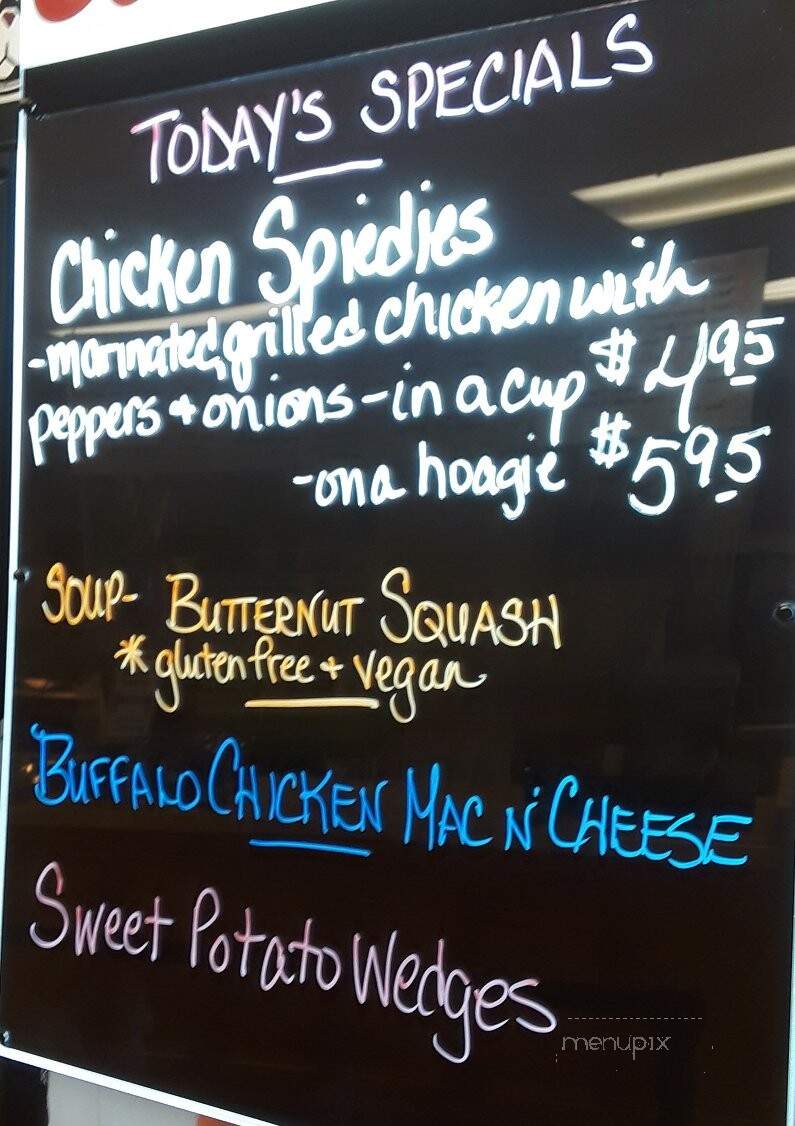 TODAY'S SPECIALS
Chicken Spiedies
-marinated, grilled chicken with
peppers + onions - in a cup $4.95
-on a hoagie $5.95
SOUP- BUTTERNUT SQUASH
* gluten free + vegan
BUFFALO CHICKEN MAC N' CHEESE
Sweet Potato Wedges
menupix